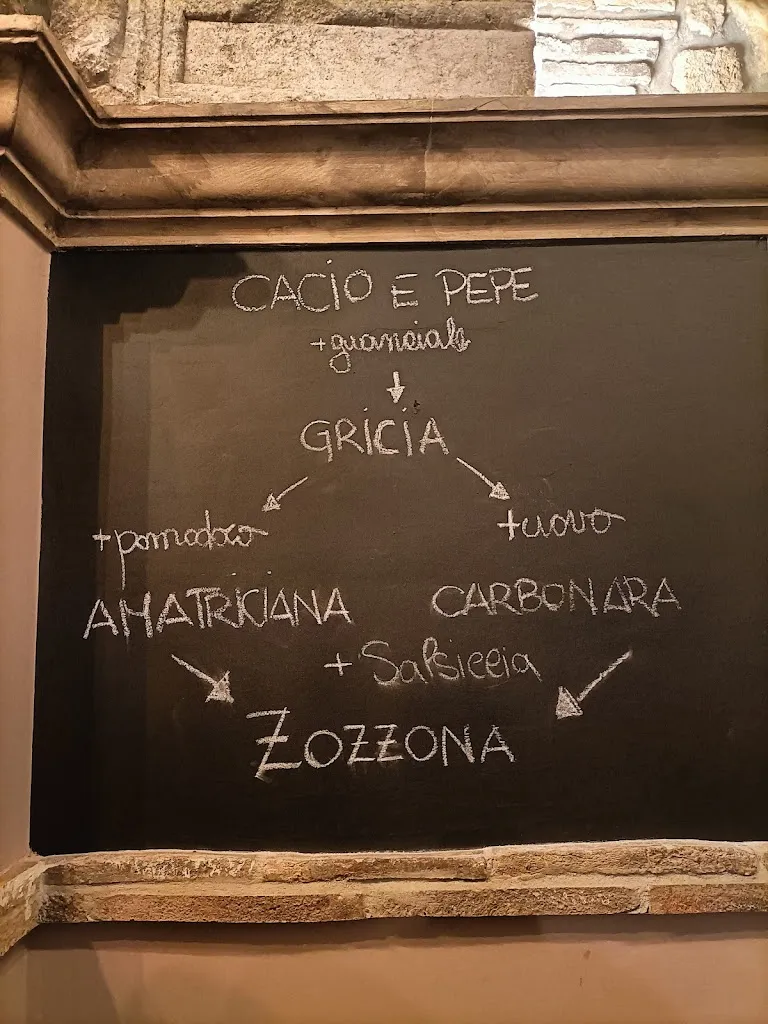 CACIO E PEPE
+guanciale
GRICIA
+pomodoro
+uovo
AMATRICIANA
CARBONARA
+ Salsiccia
ZOZZONA